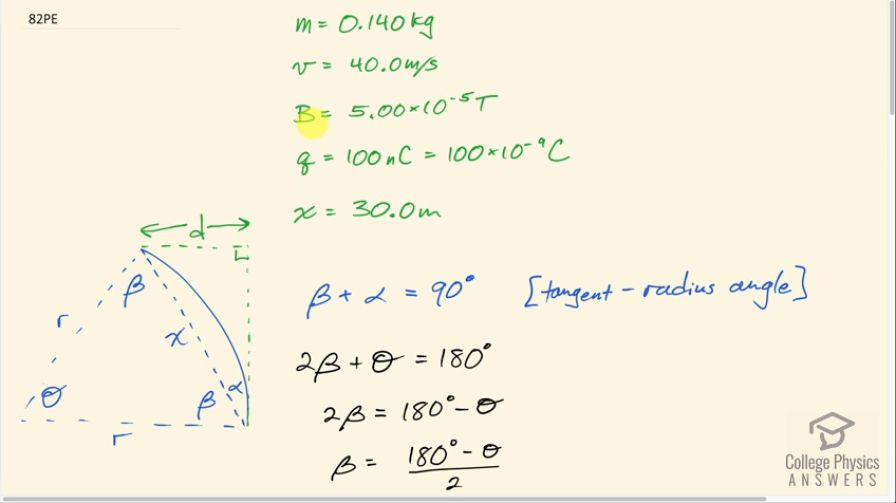 82PE
m = 0.140 kg
v = 40.0 m/s
B = 5.00 × 10⁻⁵ T
q = 100 nC = 100 × 10⁻⁹ C
x = 30.0 m
d
β
r
x
θ
β
α
r
β + α = 90° [tangent - radius angle]
2β + θ = 180°
2β = 180° - θ
β = (180° - θ)/2
College Physics
ANSWERS